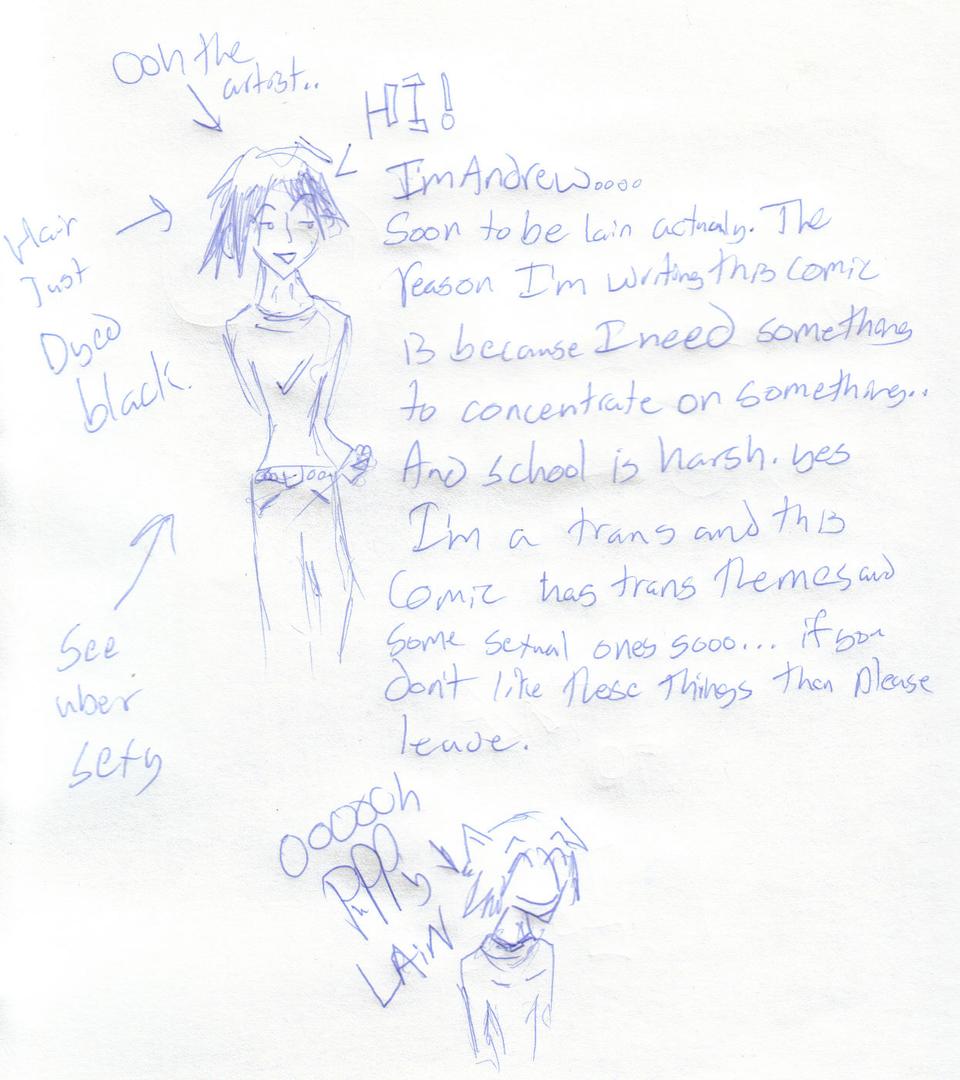 Ooh the
artist..
HI!
I'm Andrew....
Soon to be lain actually. The
reason I'm writing this comic
is because I need something
to concentrate on something..
And school is harsh. yes
I'm a trans and this
Comic has trans themes and
some sexual ones sooo... if you
don't like these things than please
leave.
Hair
Just
Dyed
black.
See
uber
sexy
OOOOOh
Puppy
LAIN